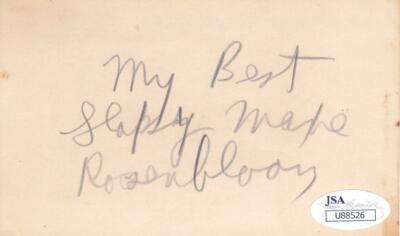 My Best
Slapsy Maxie
Rosenbloom
JSA
U88526